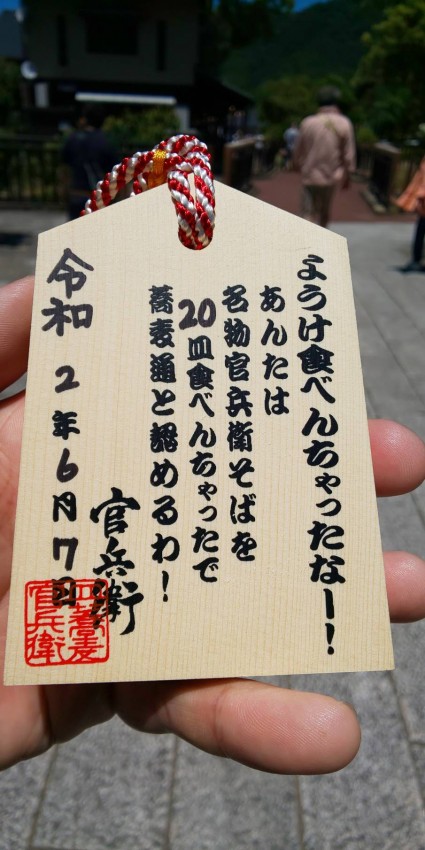 ようけ食べんちゃったなー！
あんたは
名物官兵衛そばを
20皿食べんちゃったで
蕎麦通と認めるわ！
官兵衛
令和 2年6月7日
皿蕎麦
官兵衛